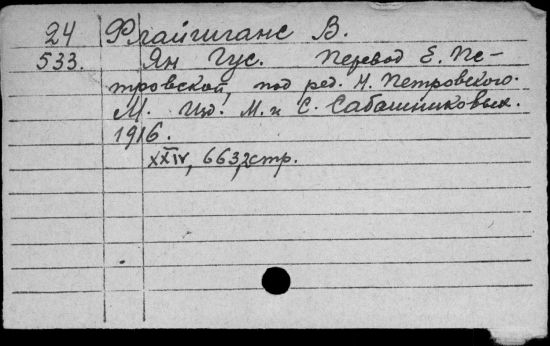 24 Флайшганс В.
533. Ян Гус. Перевод Е. Пе-
тровской, под ред. Н. Петровского.
М. Изд. М. и С. Сабашниковых.
1916.
XXIV, 663, стр.